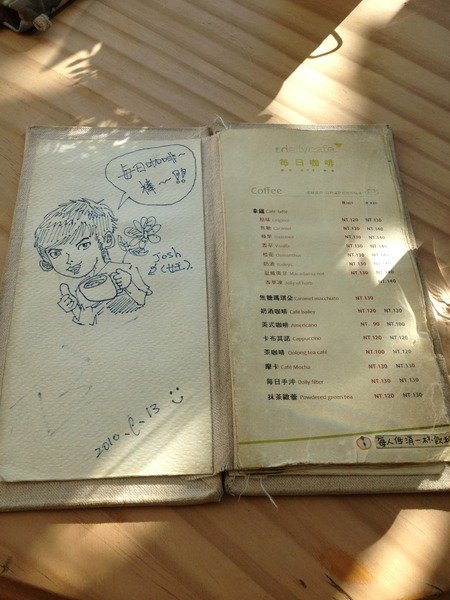 每日咖啡~
棒~!!
Josh
2010.6.13
dailycafe
每日咖啡
Coffee
拿鐵 Cafe latte
原味 Original NT.120 NT.130
焦糖 Caramel NT.130 NT.140
榛果 Hazelnut NT.130 NT.140
香草 Vanilla NT.130 NT.140
桂花 Osmanthus NT.130 NT.140
奶酒 Baileys NT.130 NT.140
夏威夷豆 Macadamia nut
香草凍 Jelly of herb NT.140
焦糖瑪琪朵 Caramel macchiato NT.130
奶酒咖啡 Café bailey NT.120 NT.130
美式咖啡 Americano NT. 90 NT.100
卡布其諾 Cappuccino NT.120 NT.130
茶咖啡 Oolong tea café NT.100 NT.120
摩卡 Café Mocha NT.120 NT.130
每日手沖 Daily filter NT.130 NT.130
抹茶歐蕾 Powdered green tea NT.120 NT.130
每人低消一杯飲料